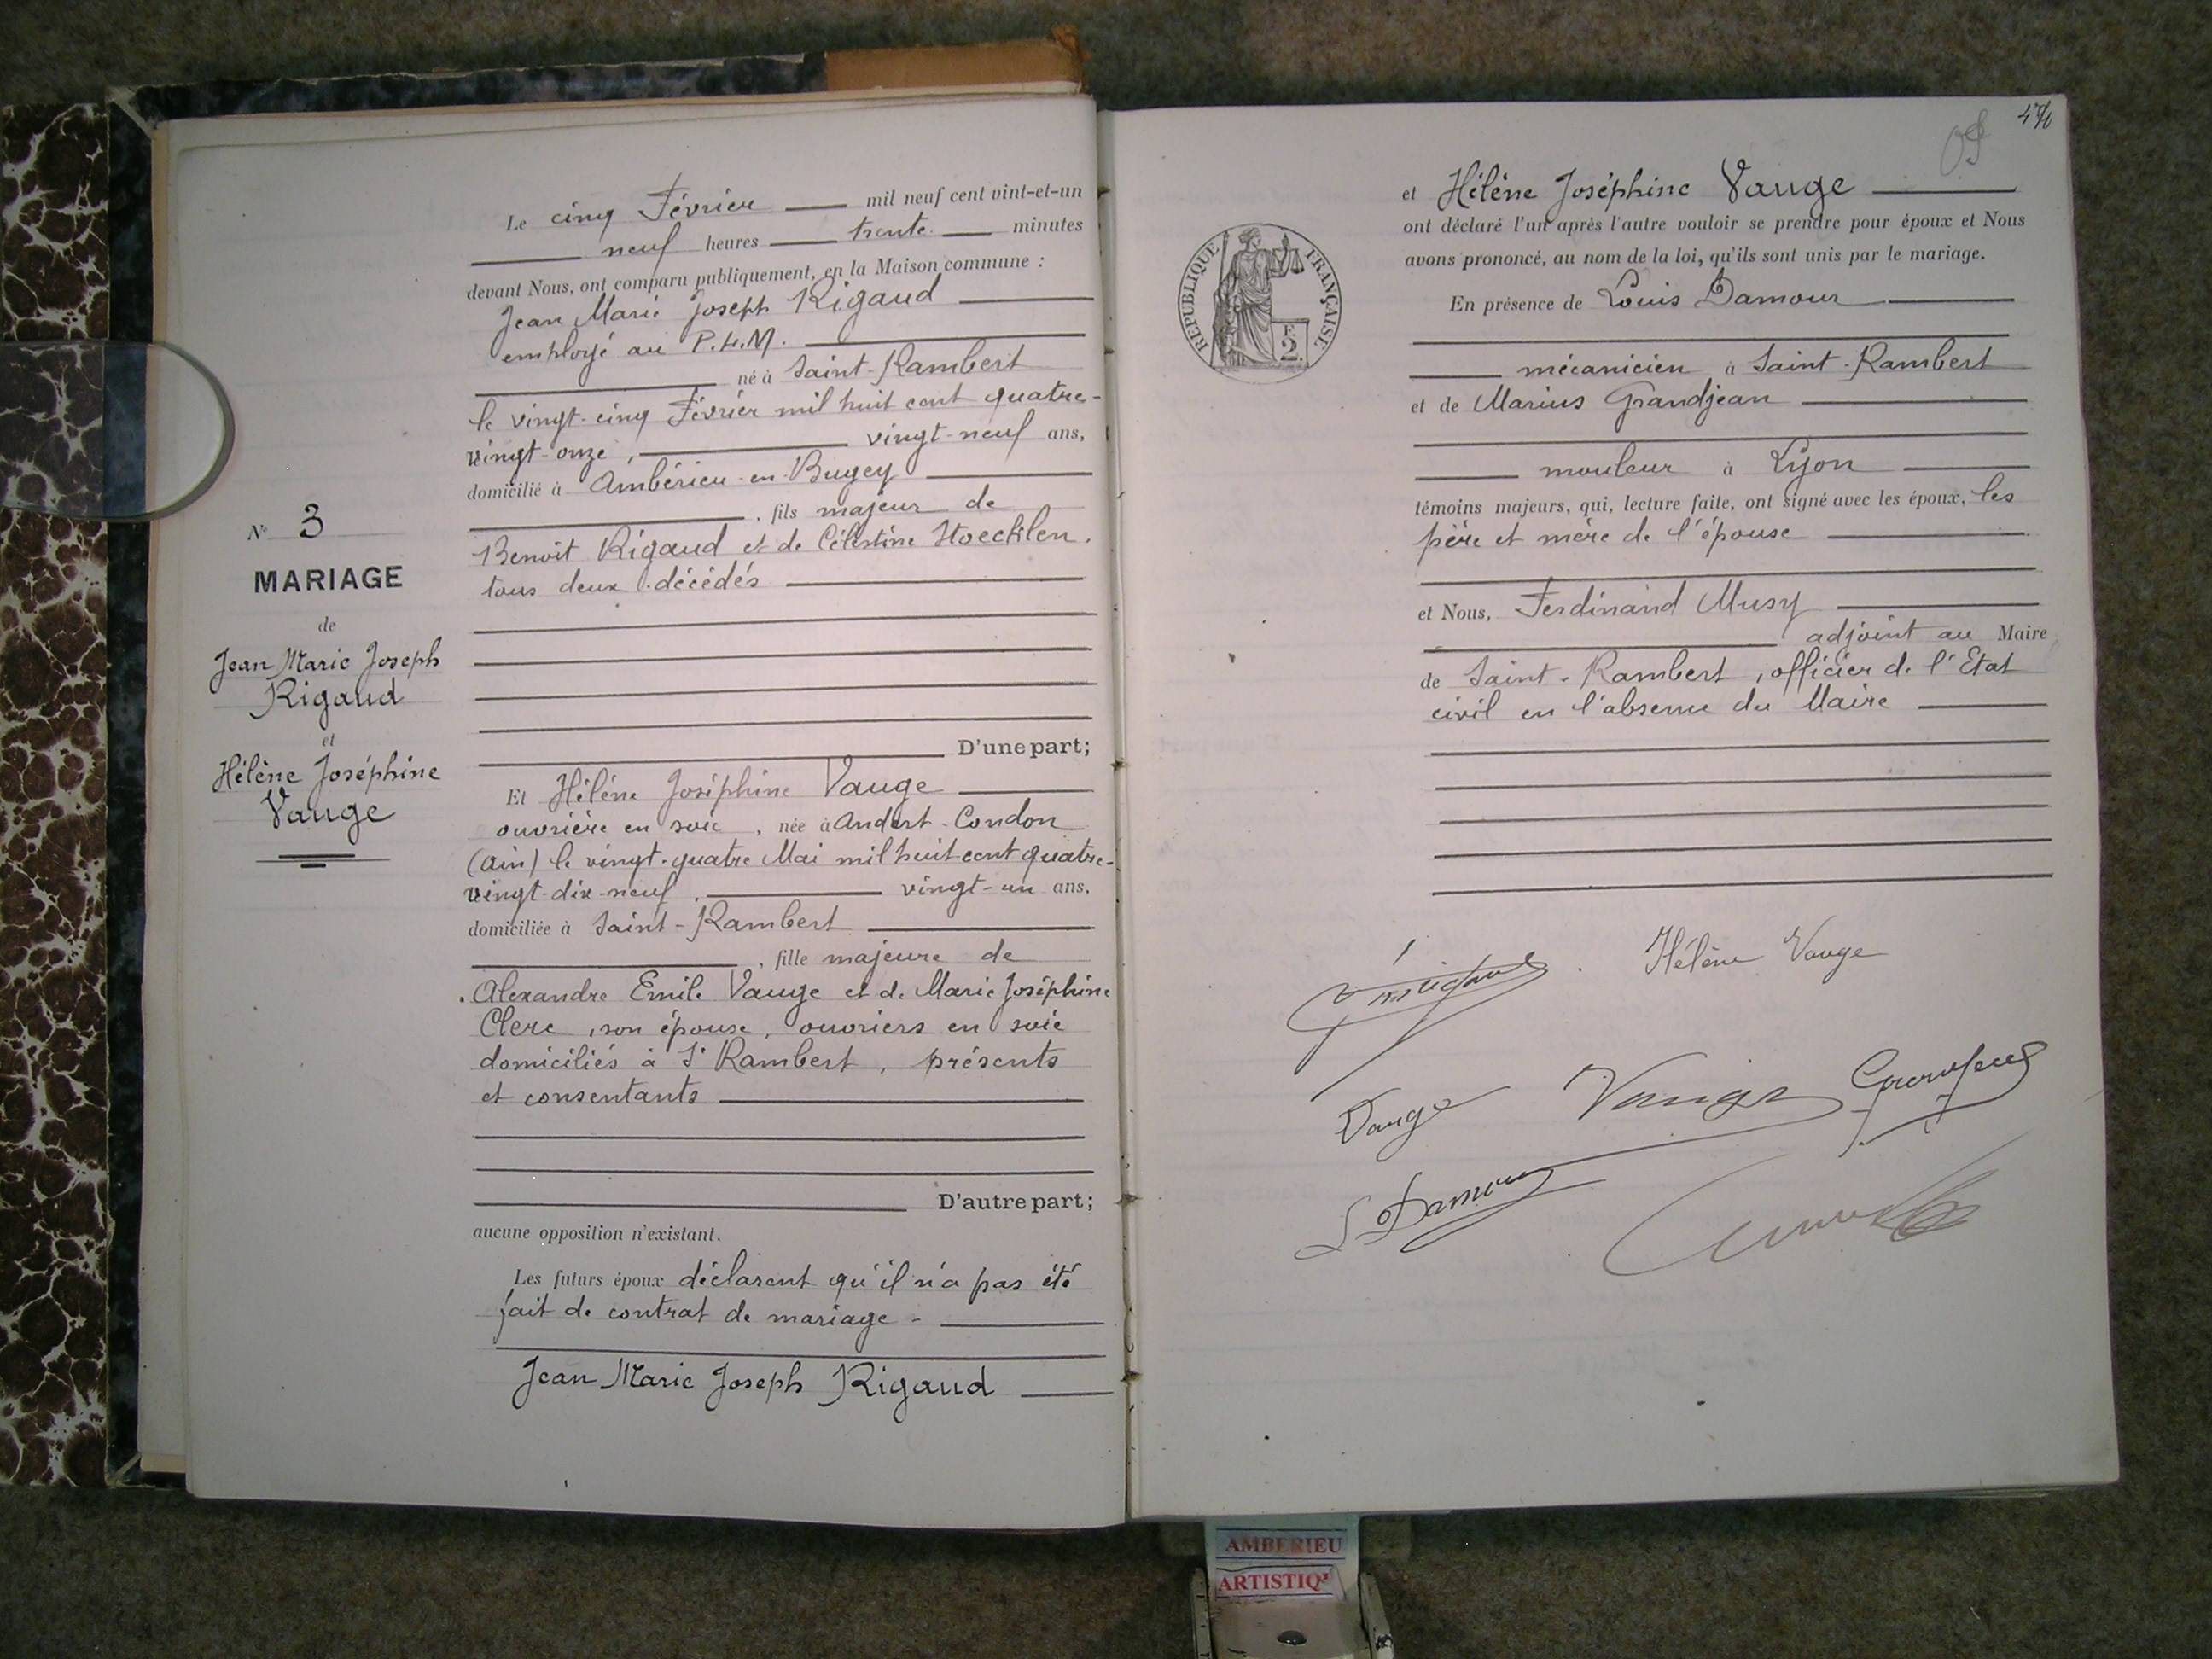 N° 3
MARIAGE
de
Jean Marie Joseph
Rigaud
et
Hélène Joséphine
Vauge
Le cinq Février mil neuf cent vint-et-un
neuf heures trente minutes
devant Nous, ont comparu publiquement, en la Maison commune :
Jean Marie Joseph Rigaud
employé au P.L.M.
né à Saint-Rambert
le vingt-cinq Février mil huit cent quatre-
vingt-onze, vingt-neuf ans,
domicilié à Ambérieu-en-Bugey
, fils majeur de
Benoit Rigaud et de Célestine Hoecklen.
tous deux décédés
D'une part;
Et Hélène Joséphine Vauge
ouvrière en soie, née à Andert-Condon
(Ain) le vingt-quatre Mai mil huit cent quatre-
vingt-dix-neuf, vingt-un ans,
domiciliée à Saint-Rambert
, fille majeure de
Alexandre Emile Vauge et de Marie Joséphine
Clerc, son épouse, ouvriers en soie
domiciliés à St Rambert, présents
et consentants
D'autre part;
aucune opposition n'existant.
Les futurs époux déclarent qu'il n'a pas été
fait de contrat de mariage -
Jean Marie Joseph Rigaud
et Hélène Joséphine Vauge
ont déclaré l'un après l'autre vouloir se prendre pour époux et Nous
avons prononcé, au nom de la loi, qu'ils sont unis par le mariage.
REPUBLIQUE FRANÇAISE
F
2
En présence de Louis Damour
mécanicien à Saint-Rambert
et de Marius Grandjean
mouleur à Lyon
témoins majeurs, qui, lecture faite, ont signé avec les époux, les
père et mère de l'épouse
et Nous, Ferdinand Musy
adjoint au Maire
de Saint-Rambert, officier de l'Etat
civil en l'absence du Maire
Hélène Vauge
Vauge Vauge Grandjean
L Damour
AMBERIEU
ARTISTIQ